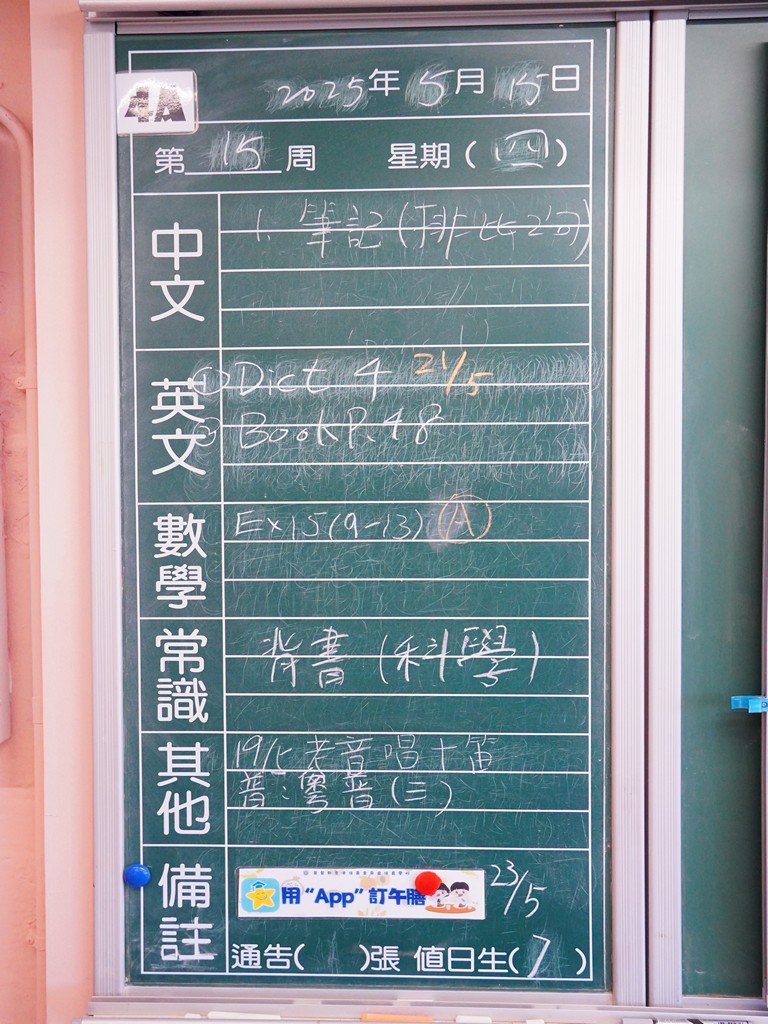 4A
2025年5月15日
第15周 星期(四)
中文
1. 筆記(排比句)
英文
① Dict 4 21/5
② Book P.48
數學
Ex15(9-13) Ⓐ
常識
背書(科學)
其他
19/5 考音唱+笛
普:粵普(三)
備註
用“App”訂午膳 23/5
通告( )張 值日生(7)